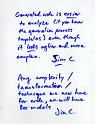 Generated code is easier
to analyze (if you know
the generation process
templates) even though
it looks uglier and more
complex.
Jim C.
Any complexity/
transformation/
technique we now have
for code, we will have
for models
Jim C.